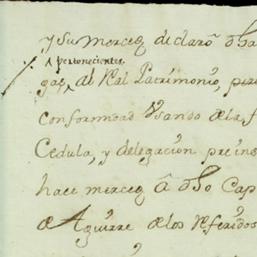 y su merced declaró dha
pertenecientes
gas, al Real Patrimonio, per
conformidad usando de la f
Cedula, y delegacion preins
hace merced â dho Cap
de Aguirre de los referidos